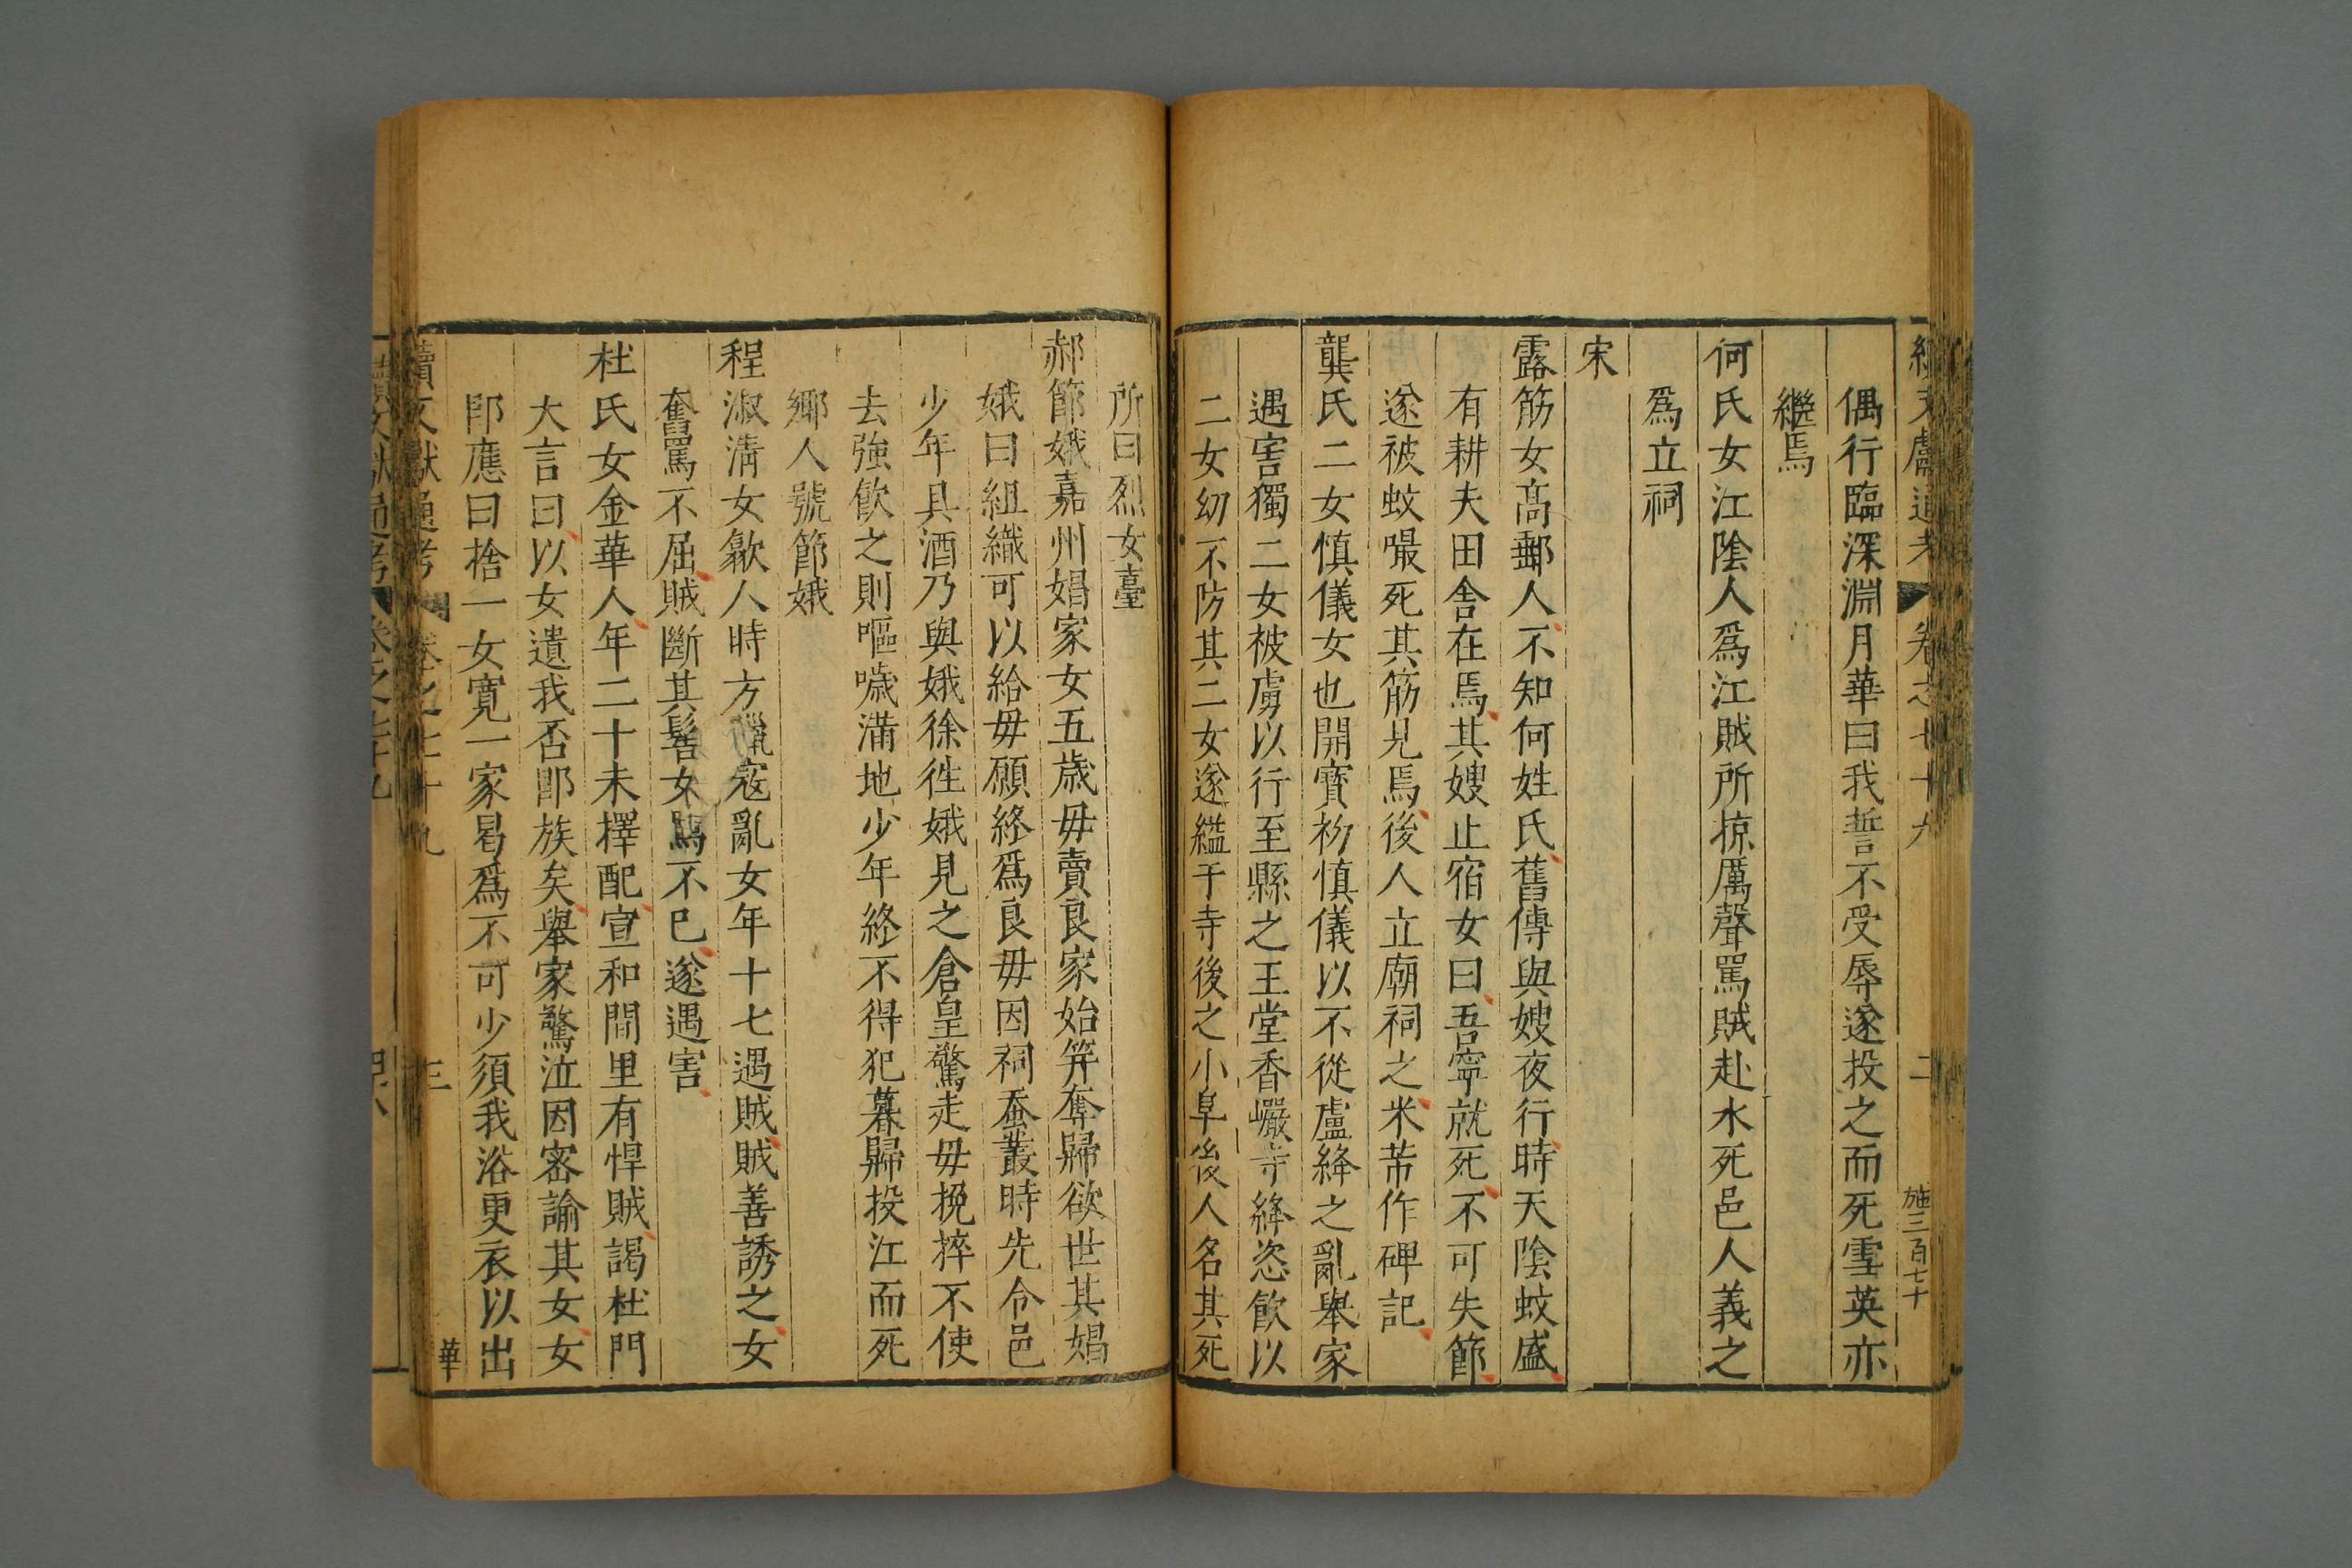 續文獻通考 卷之七十九 二 施三百七十
偶行臨深淵月華曰我誓不受辱遂投之而死雪英亦
繼焉
何氏女江陰人爲江賊所掠厲聲罵賊赴水死邑人義之
爲立祠
宋
露筋女高郵人不知何姓氏舊傳與嫂夜行時天陰蚊盛
有耕夫田舍在焉其嫂止宿女曰吾寧就死不可失節
遂被蚊嘬死其筋見焉後人立廟祠之米芾作碑記
龔氏二女慎儀女也開寳初慎儀以不從盧絳之亂舉家
遇害獨二女被虜以行至縣之王堂香巖寺絳恣飲以
二女幼不防其二女遂縊于寺後之小阜後人名其死
所曰烈女臺
郝節娥嘉州娼家女五歲毋賣良家始笄奪歸欲世其娼
娥曰組織可以給毋願終爲良毋因祠蚕叢時先令邑
少年具酒乃與娥徐徃娥見之倉皇驚走毋挽捽不使
去強飲之則嘔噦滿地少年終不得犯暮歸投江而死
鄉人號節娥
程淑清女歙人時方臘寇亂女年十七遇賊賊善誘之女
奮罵不屈賊斷其髻女罵不已遂遇害
杜氏女金華人年二十未擇配宣和間里有悍賊謁杜門
大言曰以女遺我否卽族矣舉家驚泣因密諭其女女
卽應曰捨一女寛一家曷爲不可少須我浴更衣以出
續文獻通考 卷之七十九 三 華
續文獻通考 卷之七十九